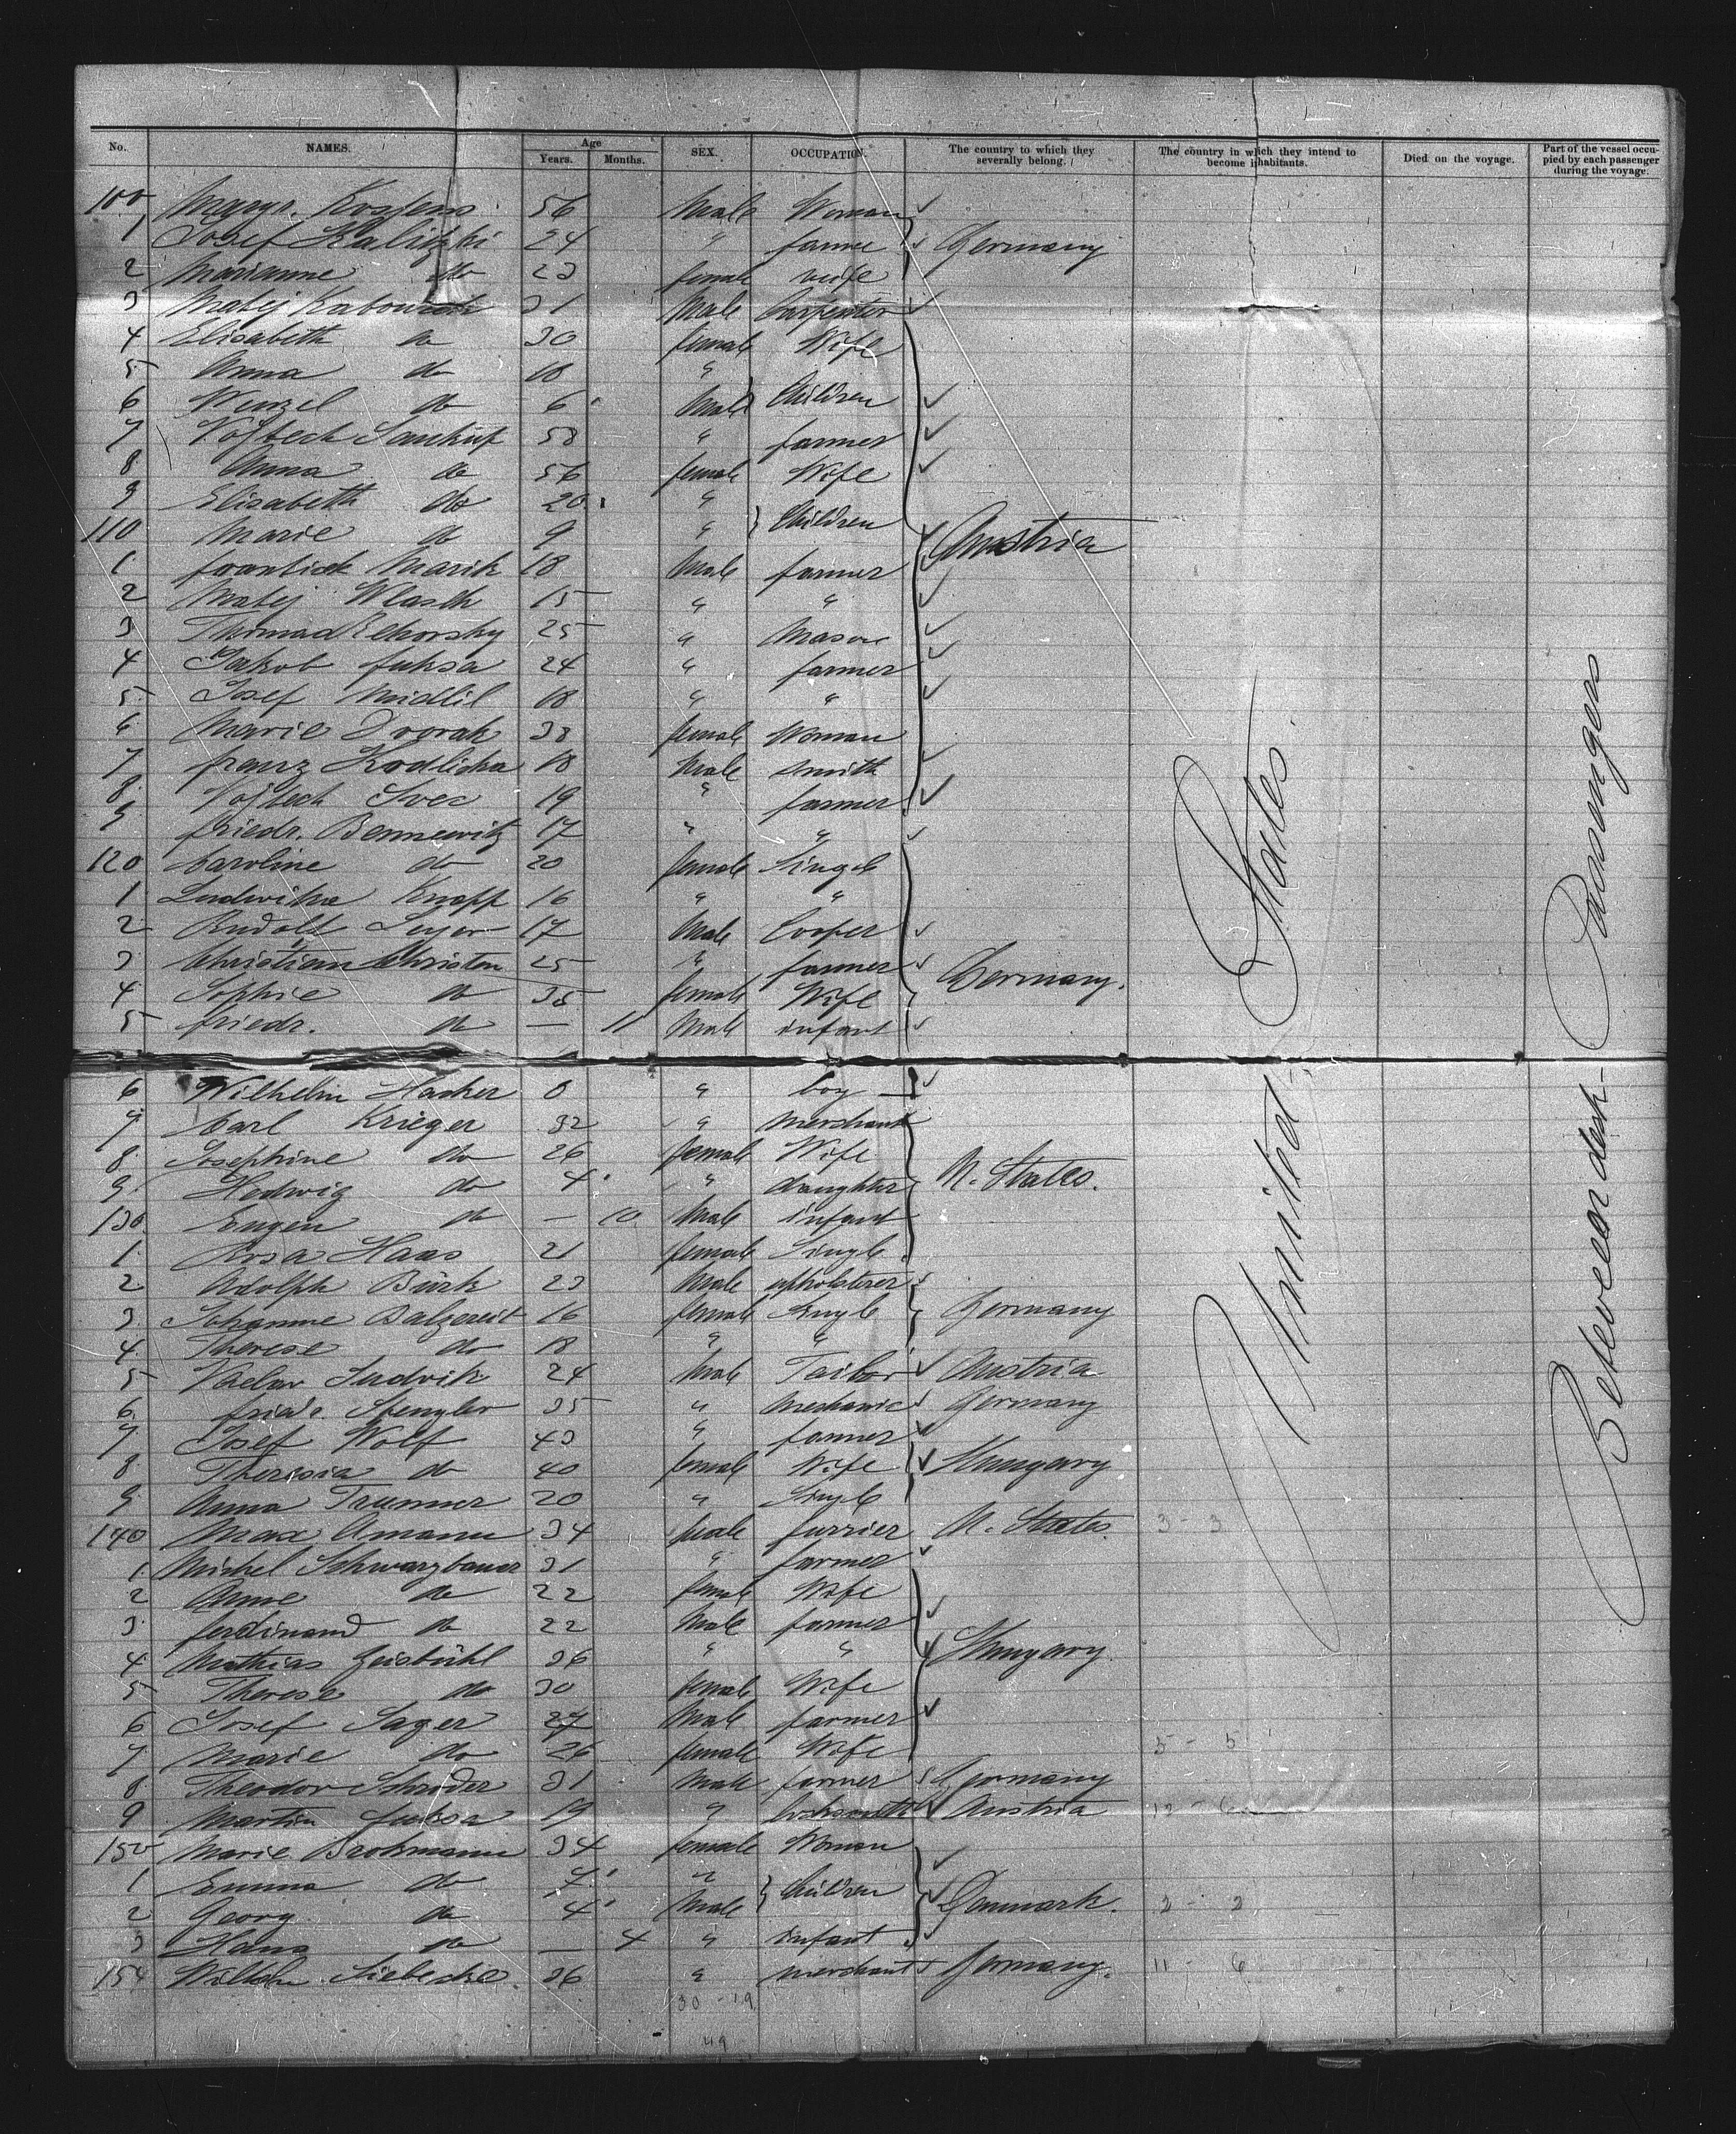 No. NAMES. Age Years. Months. SEX. OCCUPATION. The country to which they severally belong. The country in which they intend to become inhabitants. Died on the voyage. Part of the vessel occupied by each passenger during the voyage.
100 56 Male Woman
1 Josef 24 " farmer Germany
2 Marianne do 23 female wife
3 Matej 31 Male Carpenter
4 Elisabeth do 30 female Wife
5 Anna do 18 "
6 Wenzel do 6 Male Children
7 Vojtech 58 " farmer
8 Anna do 56 female Wife
9 Elisabeth do 20 "
110 Marie do 9 " Children Austria
1 Frantisek Marik 18 Male farmer
2 Matej 15 " "
3 Thomas 25 " Mason
4 Jakob Fuksa 24 " farmer
5 Josef 18 " "
6 Marie Dvorak 38 female Woman
7 Franz 18 Male Smith
8 Vojtech Svec 19 " farmer
9 Friedr. Bennewitz 17 " "
120 Caroline do 20 female Single
1 Ludwika Knapp 16 " "
2 Rudolf 17 Male Cooper
3 Christian Christen 25 " farmer Germany.
4 Sophie do 35 female Wife
5 Friedr. do — 11 Male infant
6 Wilhelm Hacker " boy
7 Carl Krieger 32 " Merchant
8 Josephine do 26 female Wife
9 Hedwig do 4 " daughter U. States.
130 Eugen do — 10 Male infant
1 Rosa Haas 21 female Single
2 Adolph Bürk 23 Male upholsterer
3 Johanne Balzereit 16 female Single Germany
4 Therese do 18 " "
5 Vaclav Ludvik 24 Male Tailor Austria
6 Friedr. Stengler 35 " Mechanic Germany
7 Josef Wolf 43 " farmer
8 Theresia do 40 female Wife Hungary
9 Anna Trummer 20 " Single
140 Max Amann 34 Male furrier U. States 3 - 3
1 Michel Schwarzbauer 31 " farmer
2 Anne do 22 female Wife
3 Ferdinand do 22 Male farmer
4 Mathias Geisbühl 36 " " Hungary
5 Therese do 30 female Wife
6 Josef Sager 27 Male farmer
7 Marie do 26 female Wife 5 - 5
8 Theodor Schröder 31 Male farmer Germany
9 Martin Fuksa 19 " locksmith Austria 12 - 6
150 Marie Brohmann 34 female Woman
1 Emma do 7 " Children
2 Georg do 4 Male Denmark. 2 - 2
3 Hans do — 4 " infant
154 Wilhelm Siebecke. 36 " merchant Germany. 11 - 6
30 - 19
49
United States.
Betweendeck Passengers